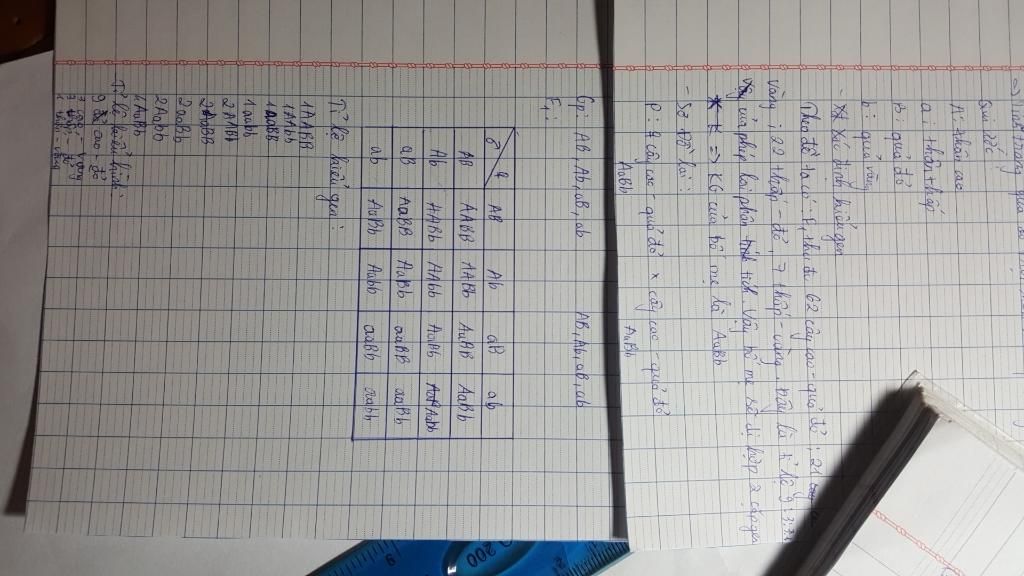 Quy ước:
A: thân cao
a: thân thấp
B: quả đỏ
b: quả vàng
- Xác định kiểu gen
Theo đề ta có: F1 thu đc 62 cây cao-quả đỏ; 21 cao
vàng; 22 thấp-đỏ, 7 thấp-vàng. Đây là tỉ lệ 9:3:3:1
của phép lai phân tích. Vậy bố mẹ sẽ dị hợp 2 cặp gen
=> KG của bố mẹ là AaBb
- Sơ đồ lai:
P: ♀ cây cao-quả đỏ x cây cao-quả đỏ
AaBb AaBb
Gp: AB, Ab, aB, ab AB, Ab, aB, ab
F1:
♂ ♀ AB Ab aB ab
AB AABB AABb AaBB AaBb
Ab AABb AAbb AaBb Aabb
aB AaBB AaBb aaBB aaBb
ab AaBb Aabb aaBb aabb
Tỉ lệ kiểu gen:
1AABB
1AAbb
1aaBB
1aabb
2AABb
2AaBB
2aaBb
2Aabb
4AaBb
Tỉ lệ kiểu hình:
9 cao-đỏ
3 cao-vàng
3 thấp-đỏ
1 thấp-vàng
200